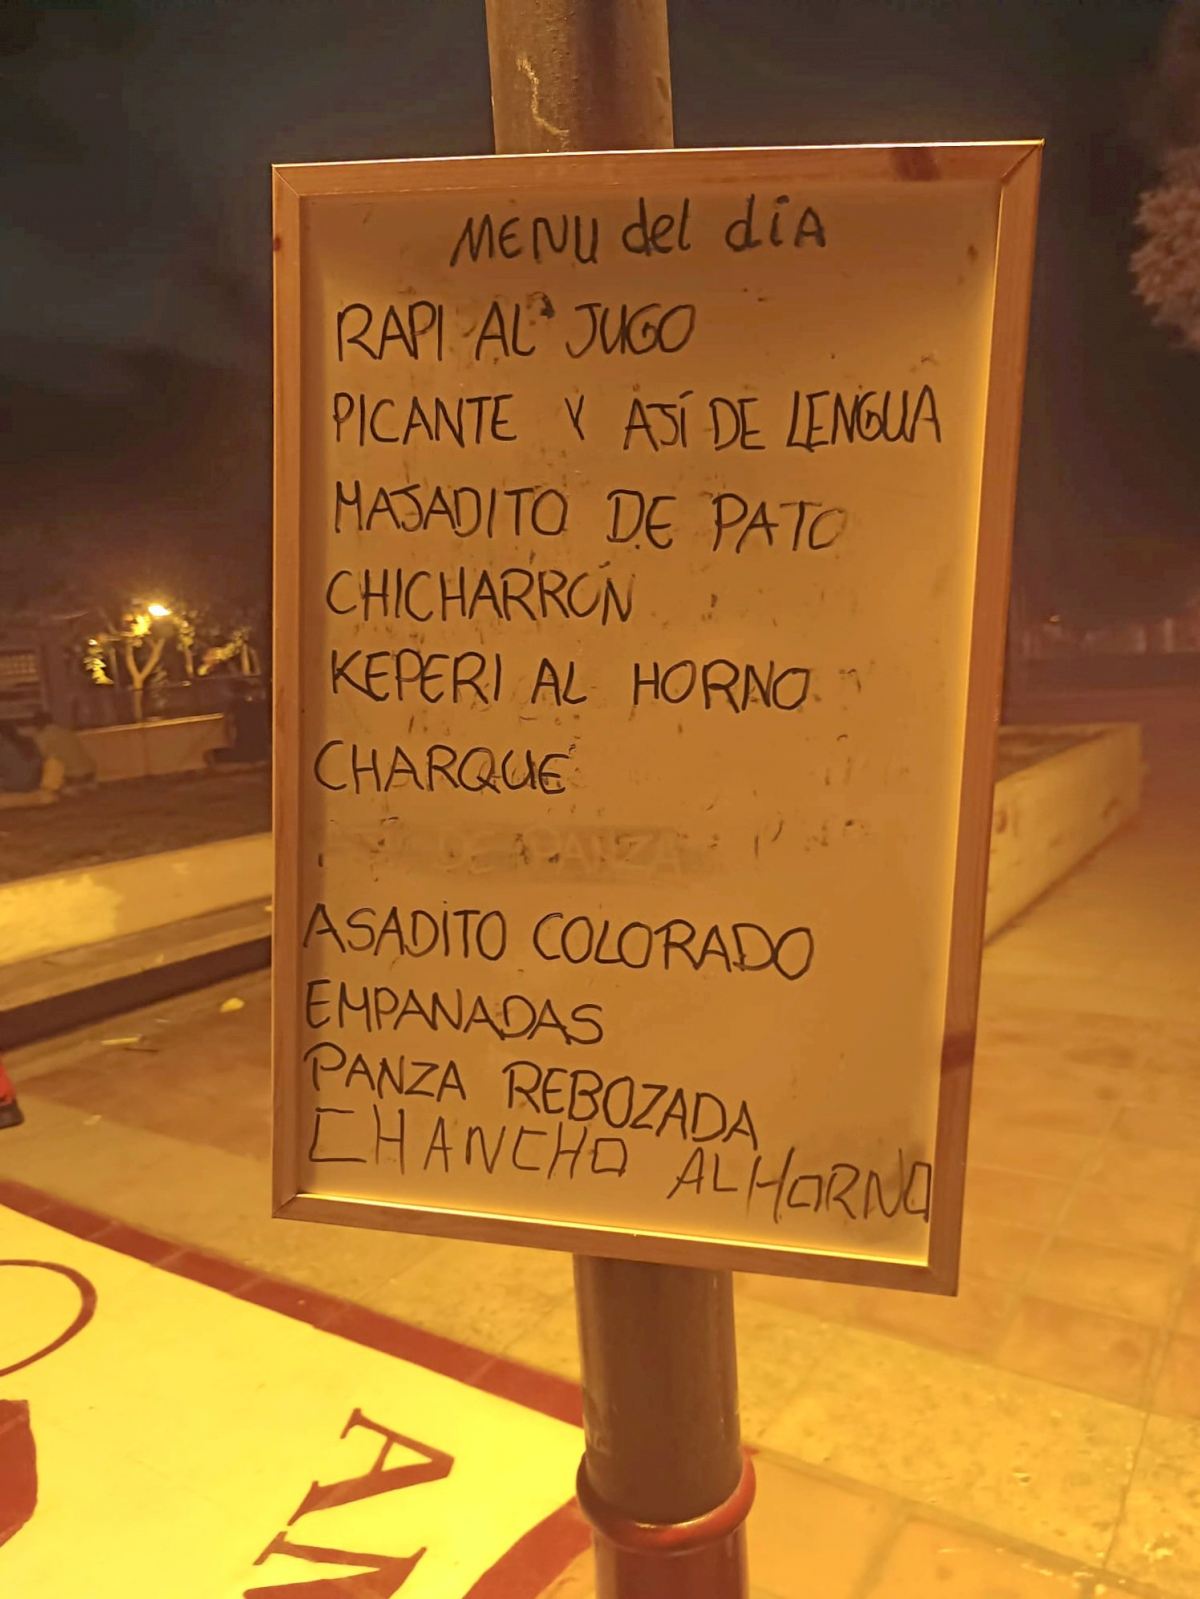 MENU del díA
RAPI AL JUGO
PICANTE Y AJÍ DE LENGUA
MAJADITO DE PATO
CHICHARRÓN
KEPERI AL HORNO
CHARQUE
DE PANZA
ASADITO COLORADO
EMPANADAS
PANZA REBOZADA
CHANCHO AL HORNO
A